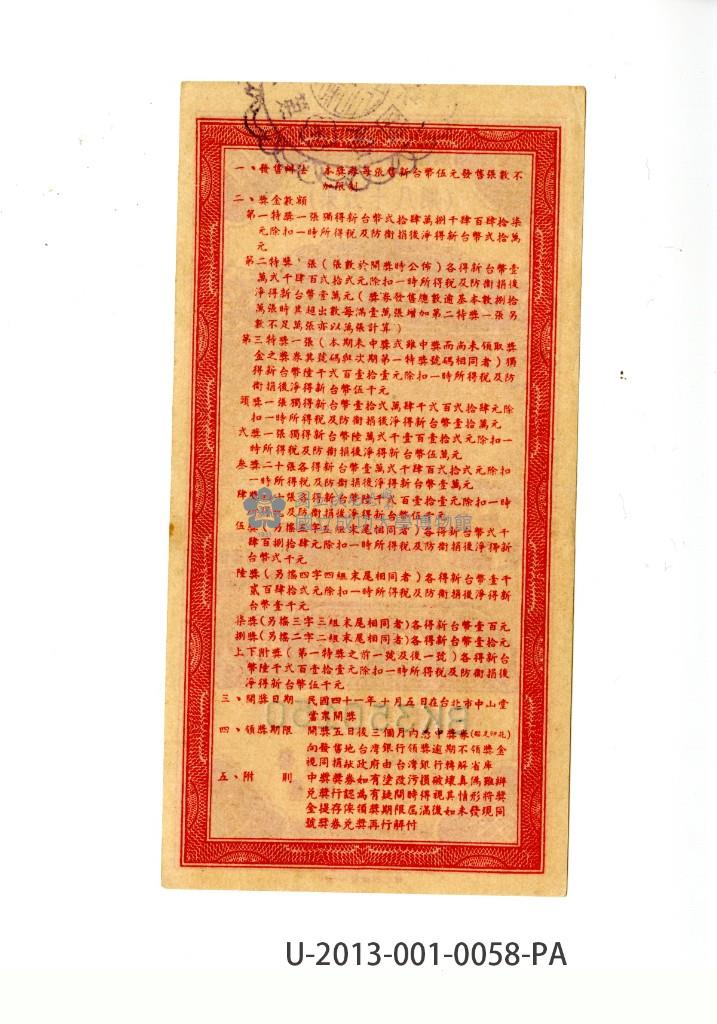 一、發售辦法 本獎券每張售新台幣伍元發售張數不
加限制
二、獎金數額
第一特獎一張獨得新台幣弍拾肆萬捌千肆百肆拾柒
元除扣一時所得稅及防衛捐後淨得新台幣弍拾萬
元
第二特獎 張(張數於開獎時公佈)各得新台幣壹
萬弍千肆百弍拾弍元除扣一時所得稅及防衛捐後
淨得新台幣壹萬元(獎券發售總數逾基本數捌拾
萬張時其超出數每滿壹萬張增加第二特獎一張另
數不足萬張亦以萬張計算)
第三特獎一張(本期未中獎或雖中獎而尚未領取獎
金之獎券其號碼與次期第一特獎號碼相同者)獨
得新台幣陸千弍百壹拾壹元除扣一時所得稅及防
衛捐後淨得新台幣伍千元
頭獎一張獨得新台幣壹拾弍萬肆千弍百弍拾肆元除
扣一時所得稅及防衛捐後淨得新台幣壹拾萬元
弍獎一張獨得新台幣陸萬弍千壹百壹拾弍元除扣一
時所得稅及防衛捐後淨得新台幣伍萬元
叁獎二十張各得新台幣壹萬弍千肆百弍拾弍元除扣
一時所得稅及防衛捐後淨得新台幣壹萬元
肆獎 十張各得新台幣陸千弍百壹拾壹元除扣一時
所得稅及防衛捐後淨得新台幣伍千元
國立成功大學博物館
伍獎(另搖五字五組末尾相同者)各得新台幣弍千
肆百捌拾肆元除扣一時所得稅及防衛捐後淨得新
台幣弍千元
陸獎(另搖四字四組末尾相同者)各得新台幣壹千
貳百肆拾弍元除扣一時所得稅及防衛捐後淨得新
台幣壹千元
柒獎(另搖三字三組末尾相同者)各得新台幣壹百元
捌獎(另搖二字二組末尾相同者)各得新台幣壹拾元
上下附獎(第一特獎之前一號及後一號)各得新台
幣陸千弍百壹拾壹元除扣一時所得稅及防衛捐後
淨得新台幣伍千元
三、開獎日期 民國四十一年十月五日在台北市中山堂
當眾開獎
四、領獎期限 開獎五日後三個月內憑中獎券(貼足印花)
向發售地台灣銀行領獎逾期不領獎金
視同捐献政府由台灣銀行轉解省庫
五、附則 中獎獎券如有塗改污損破壞真偽難辨
兌獎行認為有疑問時得視其情形將獎
金提存俟領獎期限屆滿後如未發現同
號獎券兌獎再行解付
U-2013-001-0058-PA